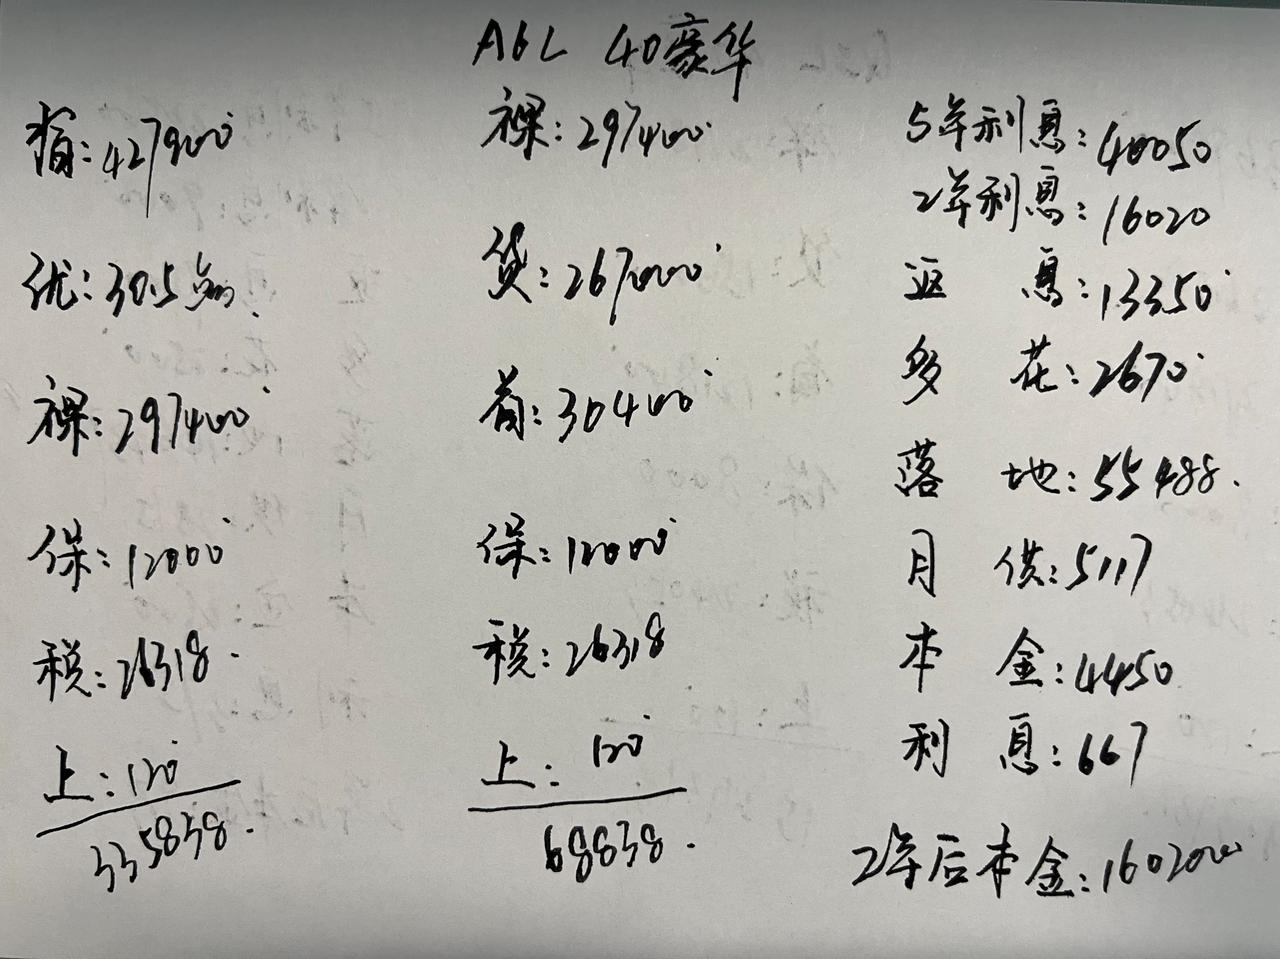 A6L 40豪华
指: 427900
优: 30.5点
裸: 297400
保: 12000
税: 26318.
上: 120
335838.
裸: 297400
贷: 267000
首: 30400
保: 12000
税: 26318
上: 120
68838.
5年利息: 40050
2年利息: 16020
返 息: 13350
多 花: 2670
落 地: 55488.
月 供: 5117
本 金: 4450
利 息: 667
2年后本金: 160200